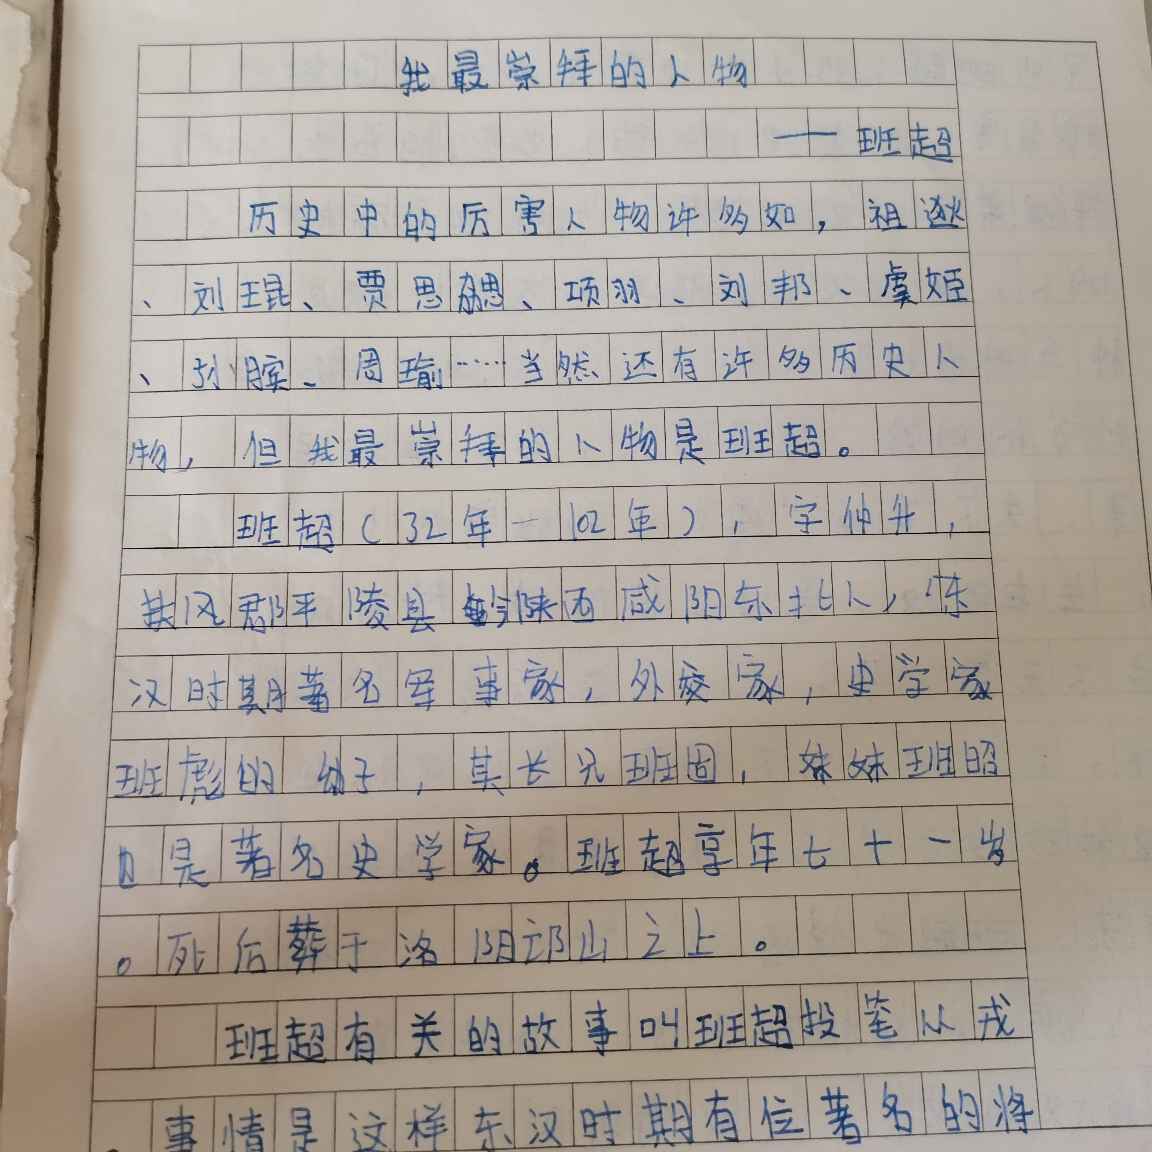 我最崇拜的人物
——班超
历史中的厉害人物许多如，祖逖
、刘琨、贾思勰、项羽、刘邦、虞姬
、孙膑、周瑜……当然还有许多历史人
物，但我最崇拜的人物是班超。
班超（32年一102年），字仲升，
扶风郡平陵县今陕西咸阳东北人，东
汉时期著名军事家，外交家，史学家
班彪的幼子，其长兄班固，妹妹班昭
也是著名史学家。班超享年七十一岁
。死后葬于洛阳邙山之上。
班超有关的故事叫班超投笔从戎
。事情是这样东汉时期有位著名的将